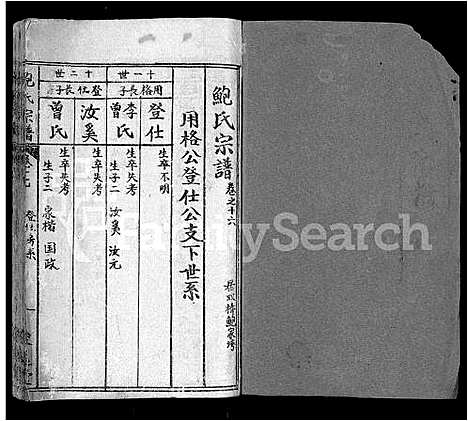 鮑氏宗譜 卷之十六
用格公登仕公支下世系
十一世
用格長子
登仕 生卒不明
李氏
曾氏 生子二 汝奚 汝元
十二世
登仕長子
汝奚 生卒失考
曾氏 生卒失考
生子二 家楷 国政
鮑氏宗譜
FamilySearch